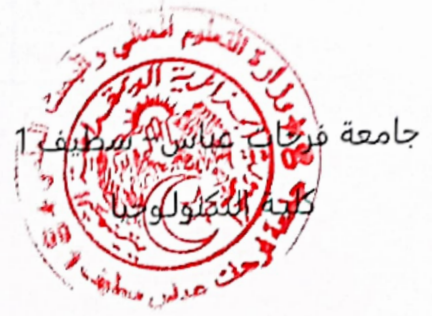 جامعة فرحات عباس - سطيف 1
كلية التكنولوجيا
وزارة التعليم العالي و البحث
فرحات عباس سطيف 1